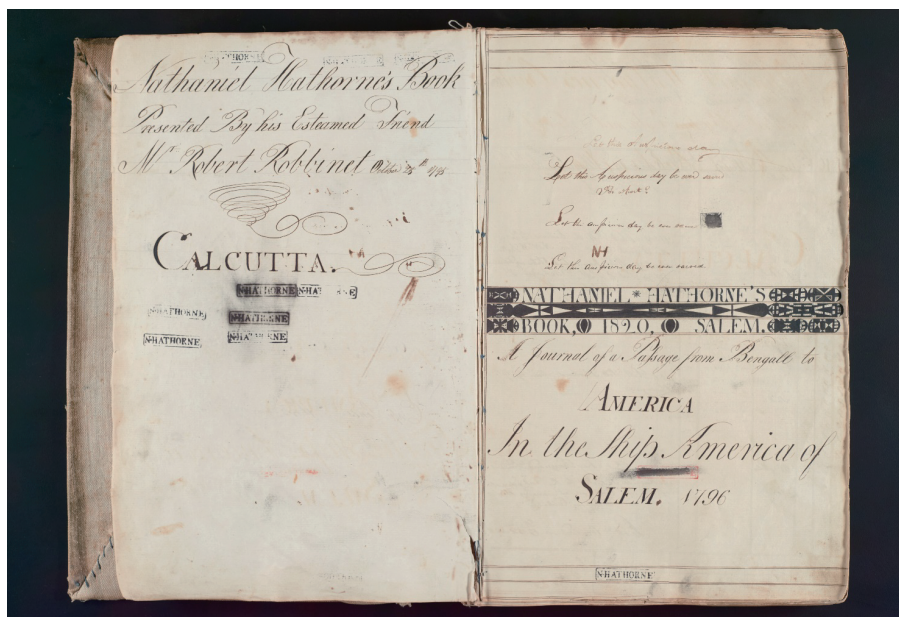 HORNE
Nathaniel Hathorne's Book
Presented By his Esteamed Friend
Mr Robert Robbinet October 28th 1795
CALCUTTA.
N·HATHORNE N·HATHORNE
N·HATHORNE
N·HATHORNE
N·HATHORNE
N·HATHORNE
day
Let this Auspicious day be ever
Let the auspicious day be ever
NH
Let the auspicious day be ever
NATHANIEL * HATHORNE'S
BOOK, 1820, SALEM.
A Journal of a Passage from Bengall to
AMERICA
In the Ship America of
SALEM. 1796
N·HATHORNE